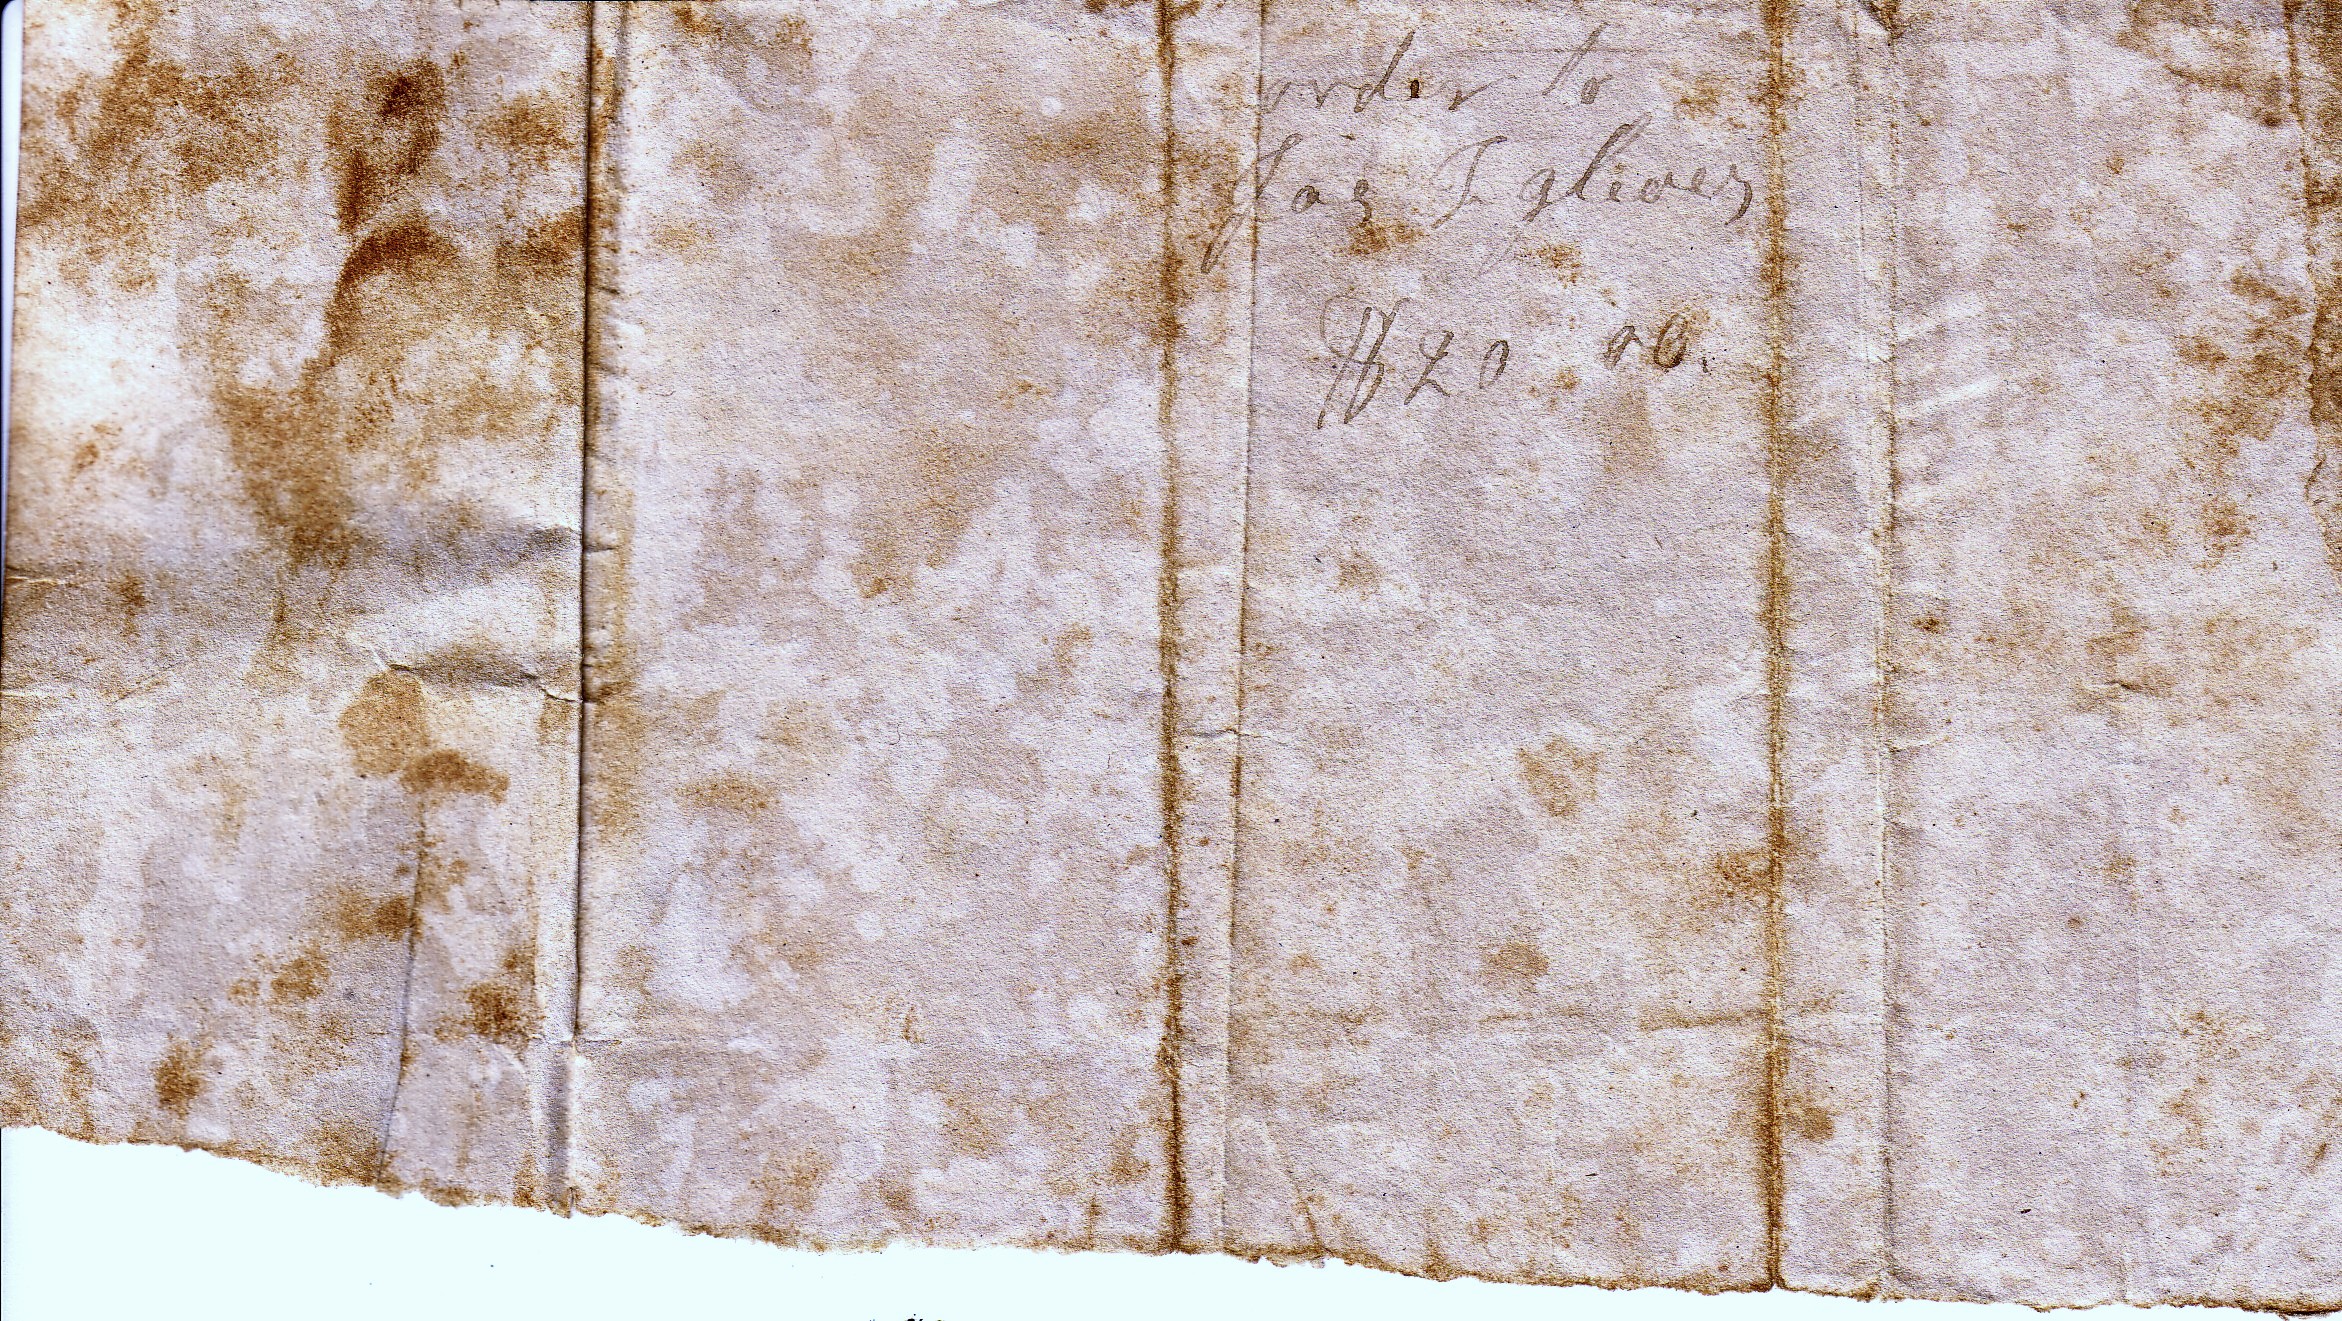 order to
Jas T. gliaes
$20 00.